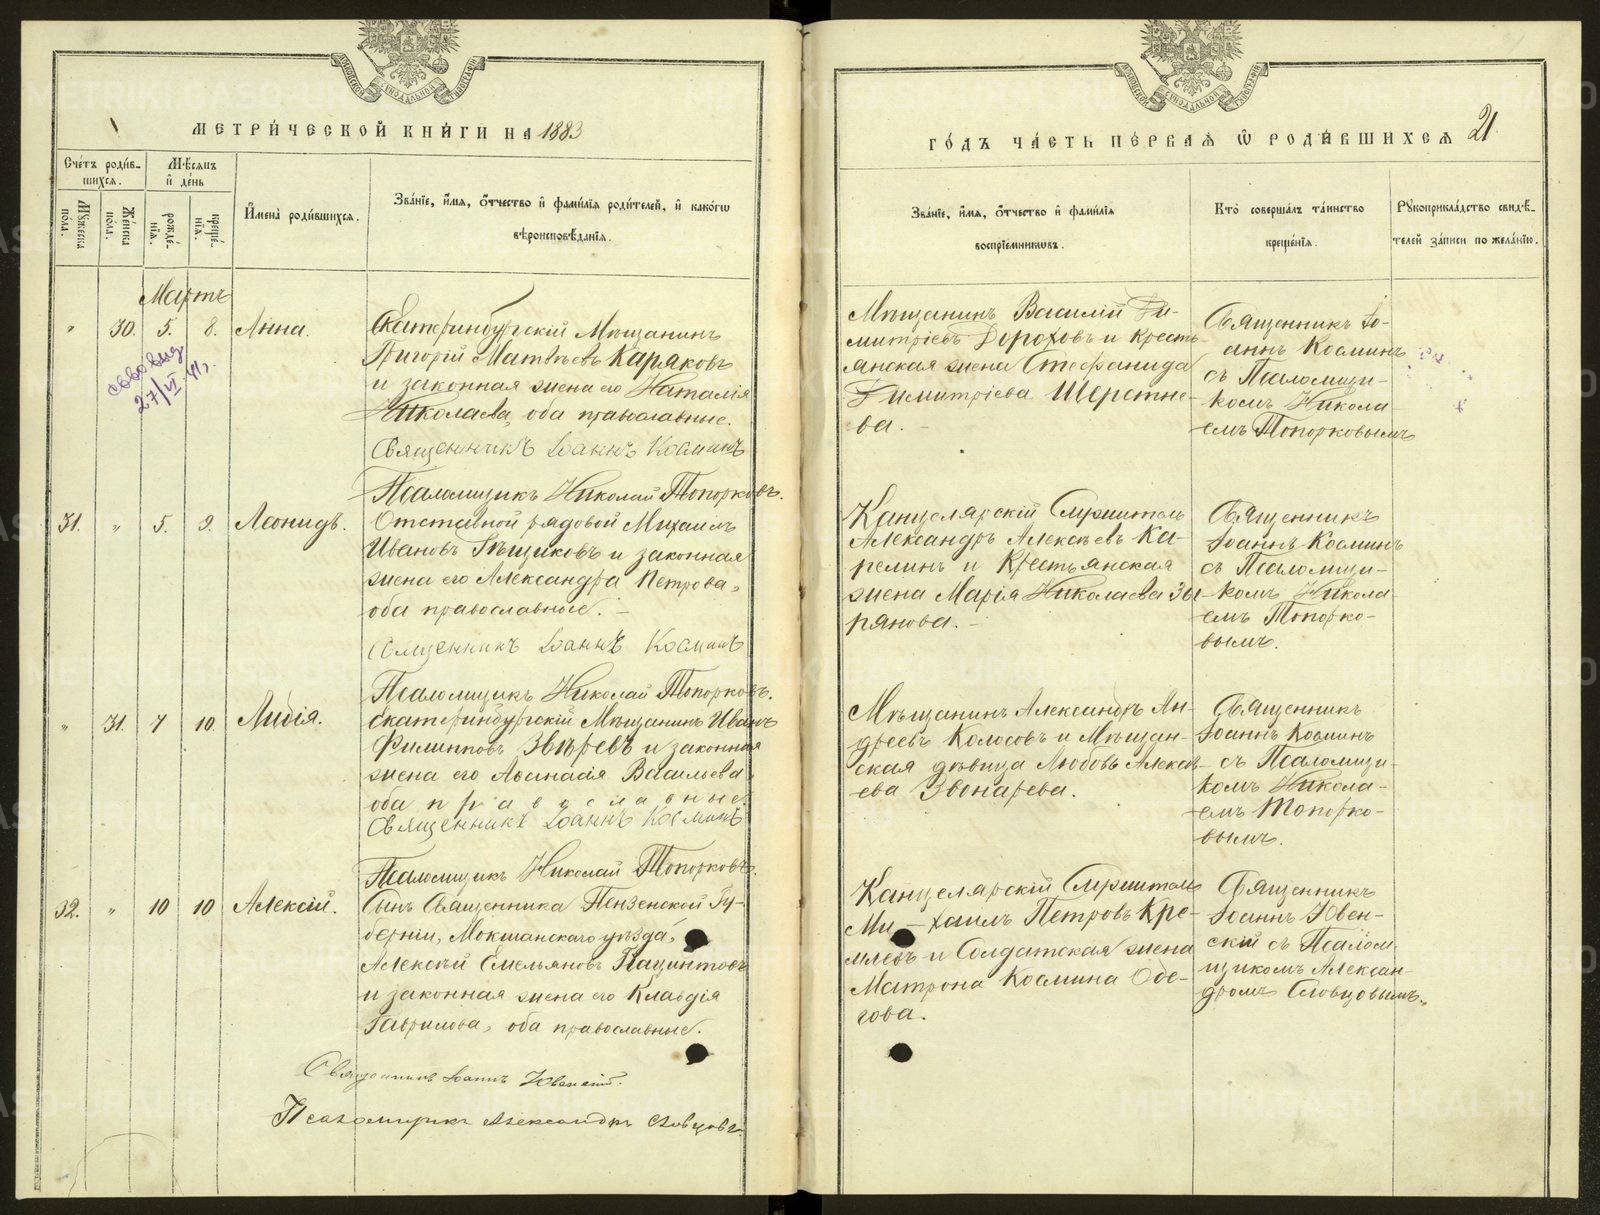 МЕТРИ́ЧЕСКОЙ КНИ́ГИ НА 1883
Сче́тъ роди́в-
шихся.
Мѣ́сяцъ
и҆ де́нь
Мꙋ́жеска по́ла.
Же́нска по́ла.
рожде́-
нїя.
креще́-
нїя.
И҆мена̀ роди́вшихся.
Зва́нїе, и҆́мя, ѻ҆́тчество и҆ фами́лїя роди́телей, и҆ како́гѡ
вѣроисповѣ́данїя.
Мартъ
" 30. 5. 8. Анна.
Екатеринбургскій Мѣщанинъ
Григорій Матвѣевъ Каряковъ
и законная жена его Наталія
Николаева, оба православные.
Священникъ Іоаннъ Косминъ
Псаломщикъ Николай Топорковъ.
27/VI-41г.
31. " 5. 9. Леонидъ.
Отставной рядовой Михаилъ
Ивановъ Грѣщиковъ и законная
жена его Александра Петрова,
оба православные. –
Священникъ Іоаннъ Косминъ
Псаломщикъ Николай Топорковъ.
" 31. 7 10. Лидія.
Екатеринбургскій Мѣщанинъ Иванъ
Филипповъ Звѣревъ и законная
жена его Аѳанасія Васильева
оба православные.
Священникъ Іоаннъ Косминъ
Псаломщикъ Николай Топорковъ.
32. " 10 10 Алексій.
Сынъ Священника Пензенской Гу-
берніи, Мокшанскаго уѣзда,
Алексѣй Емельяновъ Гіацинтовъ
и законная жена его Клавдія
Гаврилова, оба православные.
Священникъ Іоаннъ Ювенскій.
Псаломщикъ Александръ Словцовъ.
ГО́ДЪ ЧА́СТЬ ПЕ́РВАЯ Ѡ҆ РОДИ́ВШИХСЯ 21
Зва́нїе, и҆́мя, ѻ҆́тчество и҆ фами́лїя
воспрїе́мникѡвъ.
Кто̀ соверша́лъ та́инство
креще́нїя.
Рꙋкоприкла́дство свидѣ́-
телей за́писи по жела́нїю.
Мѣщанинъ Василій Ди-
митріевъ Дороховъ и Кресть-
янская жена Стефанида
Димитріева Шерстне-
ва. –
Священникъ Іо-
аннъ Косминъ
съ Псаломщи-
комъ Никола-
емъ Топорковымъ
Канцелярскій Служитель
Александръ Алексѣевъ Ка-
релинъ и Крестьянская
жена Марія Николаева Зы-
рянова. –
Священникъ
Іоаннъ Косминъ
съ Псаломщи-
комъ Никола-
емъ Топорко-
вымъ.
Мѣщанинъ Александръ Ан-
дреевъ Колосовъ и Мѣщан-
ская дѣвица Любовь Алексѣ-
ева Звонарева.
Священникъ
Іоаннъ Косминъ
съ Псаломщи-
комъ Никола-
емъ Топорко-
вымъ.
Канцелярскій Служитель
Ми – хаилъ Петровъ Кре-
млевъ и Солдатская жена
Матрона Космина Оде-
гова.
Священникъ
Іоаннъ Ювен-
скій съ Псалом-
щикомъ Алексан-
дромъ Словцовымъ.